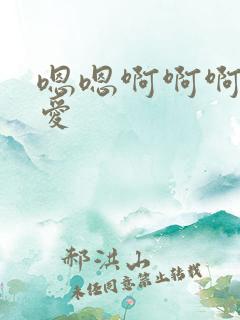 嗯嗯啊啊啊
爱
郝洪山
未经同意禁止转载